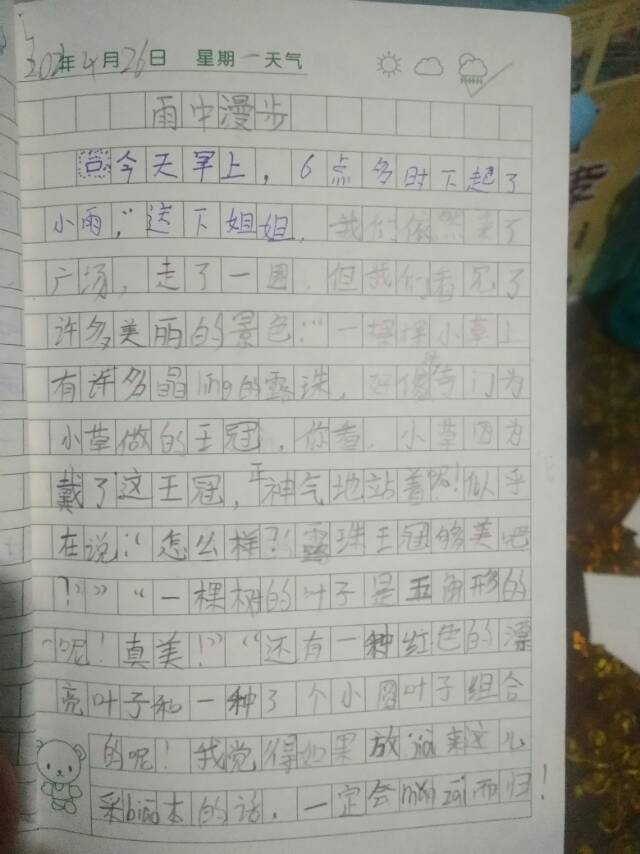 202 年4月26日 星期一天气
雨中漫步
今天早上，6点多时下起了
小雨，“送下姐姐，我们依然来了
广场，走了一圈，但我们看见了
许多美丽的景色：“一棵棵小草上
有许多晶 的露珠，好像专门为
小草做的王冠，你看，小草因为
戴了这王冠，正神气地站着呢！似乎
在说：“怎么样？露珠王冠够美吧
？”“一棵树的叶子是五角形的
呢！真美！”“还有一种红色的漂
亮叶子和一种 个小圆叶子组合
的呢！我觉得如果放jià来这儿
采biāo本的话，一定会mǎn zài而归！